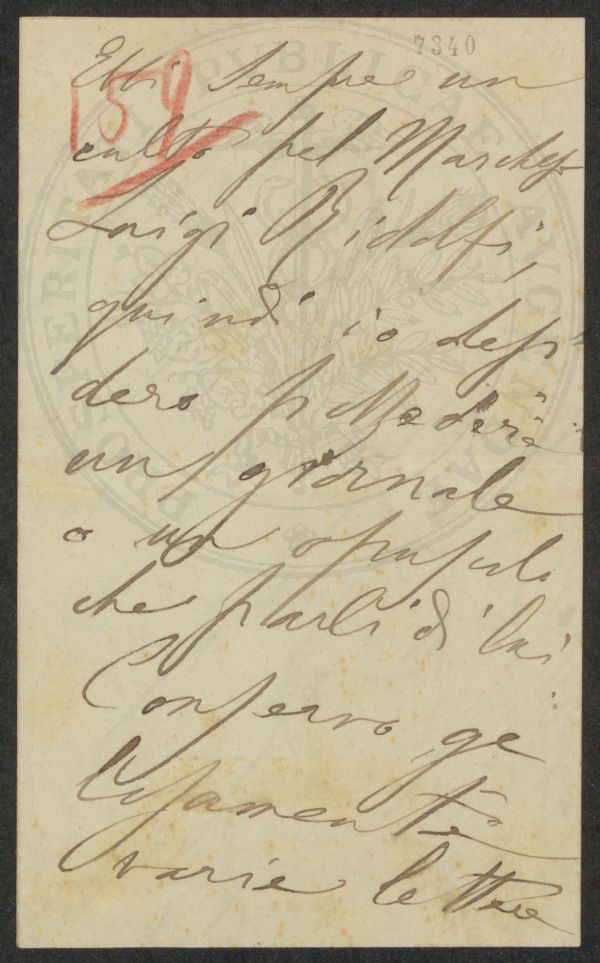 7340
59
Ebbi sempre un
culto pel Marchese
Luigi Ridolfi,
quindi io desi
dero possedere
un giornale
o un opuscolo
che parli di lui
Conservo ge
losamente
varie lettere
PROSPERITATI PUBLICAE AUGENDAE